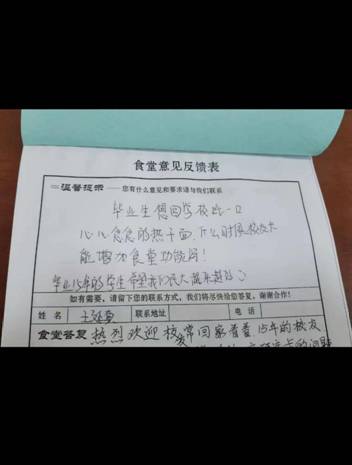 食堂意见反馈表
温馨提示——您有什么意见和要求请与我们联系
毕业生想回学校吃一口
心心念念的热干面,什么时候校友卡
能增加食堂功能阿!
毕业15年的学生希望我们民大越来越好了
如有需要,请留下您的联系方式,我们将尽快给您答复,谢谢合作!
姓名 王延 联系地址 电话
食堂答复 热烈欢迎校友常回家看看 15年的校友
卡的问题